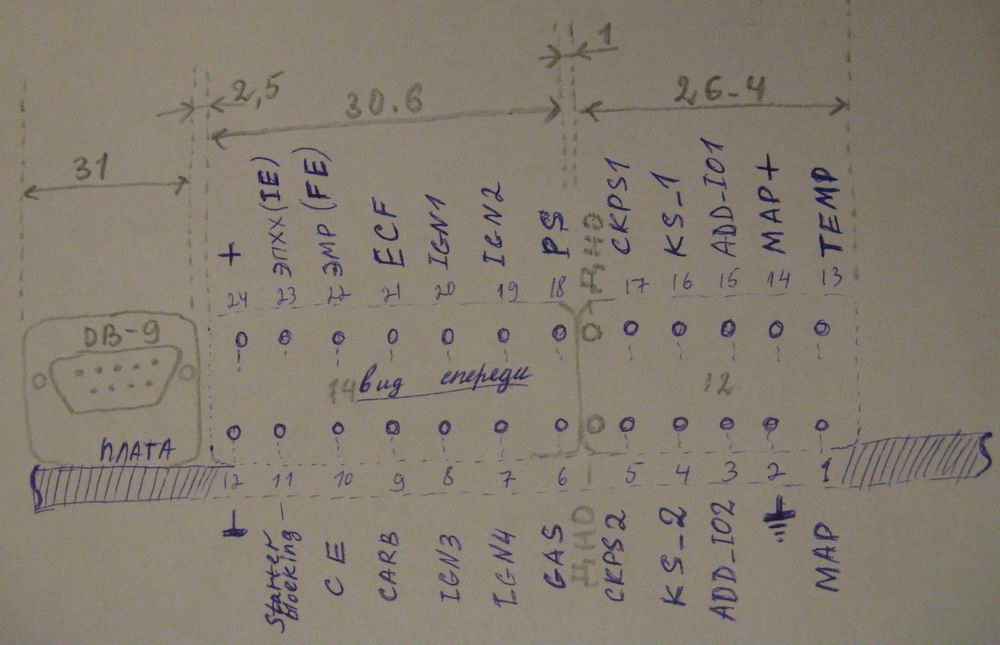 1
2,5
30.6
26-4
31
+
ЭПХХ (IE)
ЭМР (FE)
ECF
IGN1
IGN2
PS
ДНО
CKPS1
KS-1
ADD-IO1
MAP+
TEMP
24 23 22 21 20 19 18 17 16 15 14 13
DB-9
14
вид спереди
12
ПЛАТА
12 11 10 9 8 7 6 5 4 3 2 1
Starter
blocking
CE
CARB
IGN3
IGN4
GAS
ДНО
CKPS2
KS-2
ADD_IO2
MAP